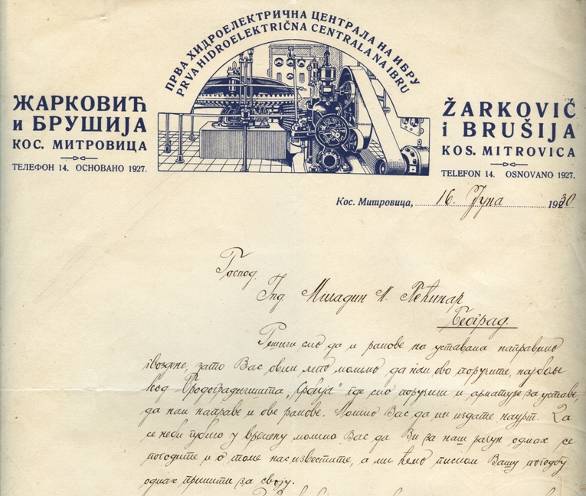 ПРВА ХИДРОЕЛЕКТРИЧНА ЦЕНТРАЛА НА ИБРУ
PRVA HIDROELEKTRIČNA CENTRALA NA IBRU
ЖАРКОВИЋ
и БРУШИЈА
КОС. МИТРОВИЦА
ТЕЛЕФОН 14. ОСНОВАНО 1927.
ŽARKOVIĆ
i BRUŠIJA
KOS. MITROVICA
TELEFON 14. OSNOVANO 1927.
Кос. Митровица, 16. Јуна 1930
Господ.
Гпд Миладин Л. Пећинар
Београд
Решили смо да и рамове за уставама направимо
гвоздене, зато Вас овим молимо да нам ово поручите, најбоље
код Бродоградилишта „Србија" где смо поручили и арматуре за уставе,
да нам направе и ове рамове. Молимо Вас да им издате нацрт. Да
се неби губило у времену молимо Вас да Ви за наш рачун одмах се
погодите и о томе нас известите, а ми ћемо писмом Вашу погодбу
одмах примити за своју.